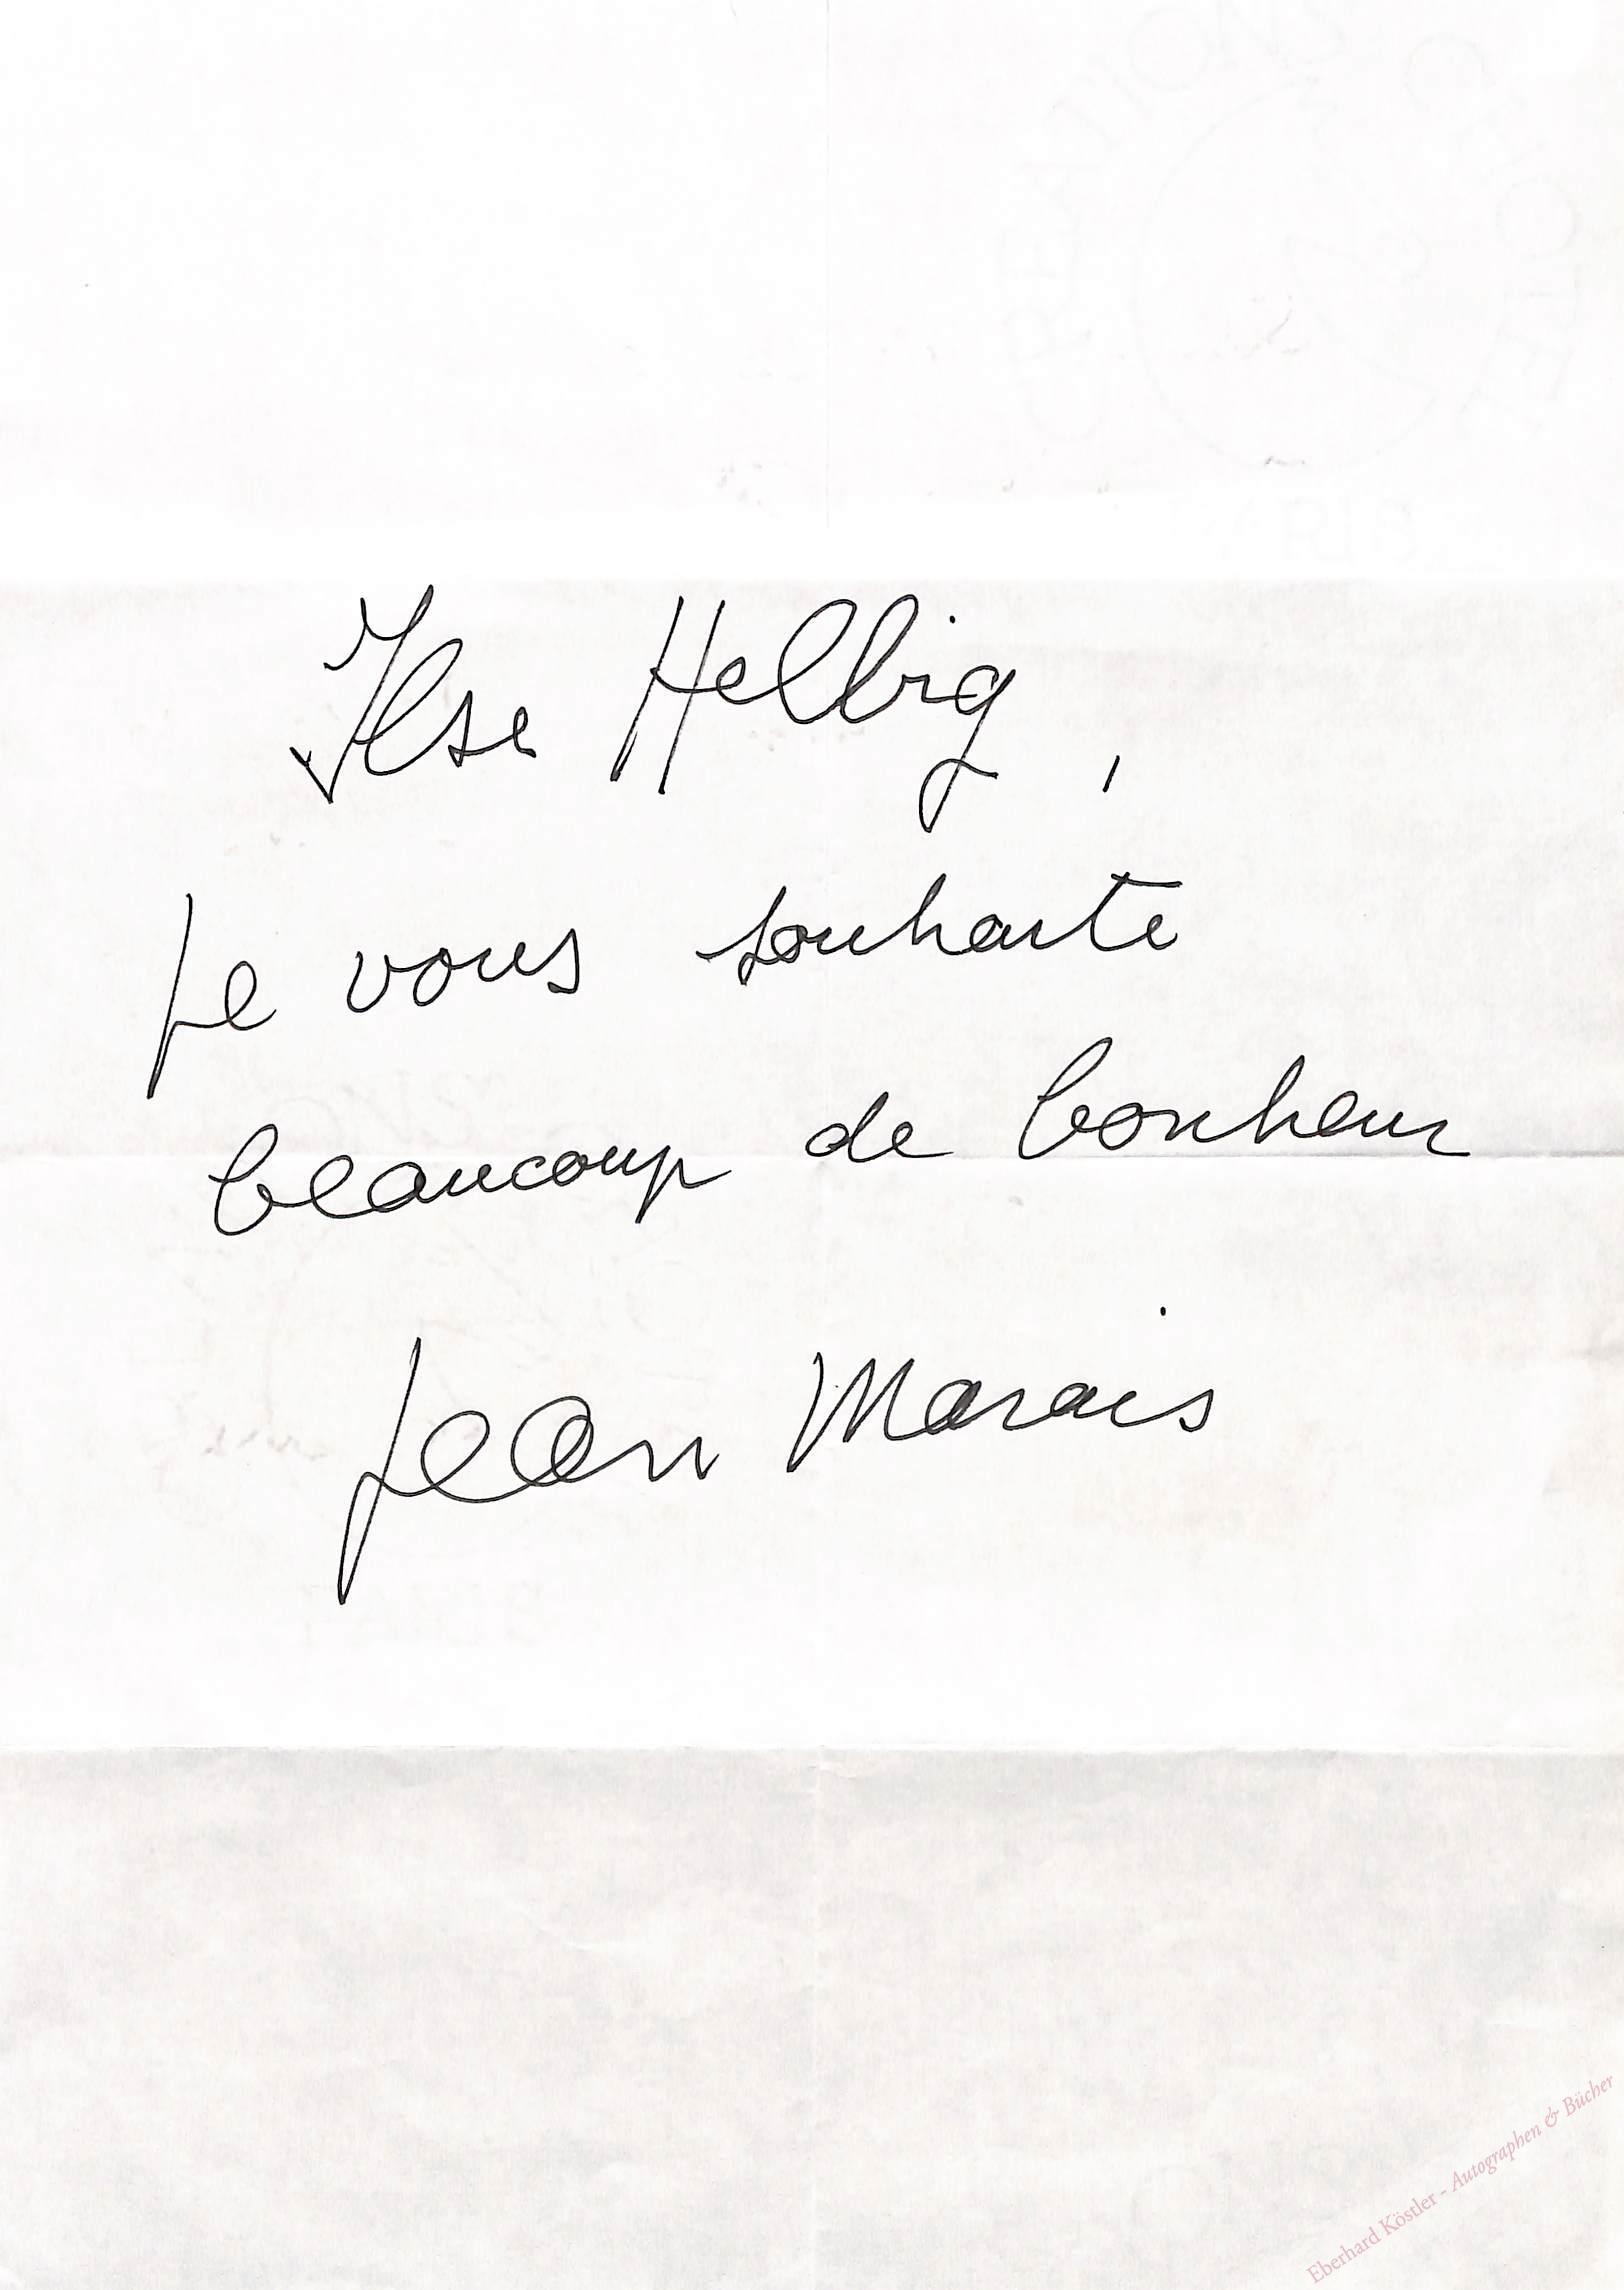 Ilse Helbig,
je vous souhaite
beaucoup de bonheur
Jean Marais
Eberhard Köstler - Autographen & Bücher